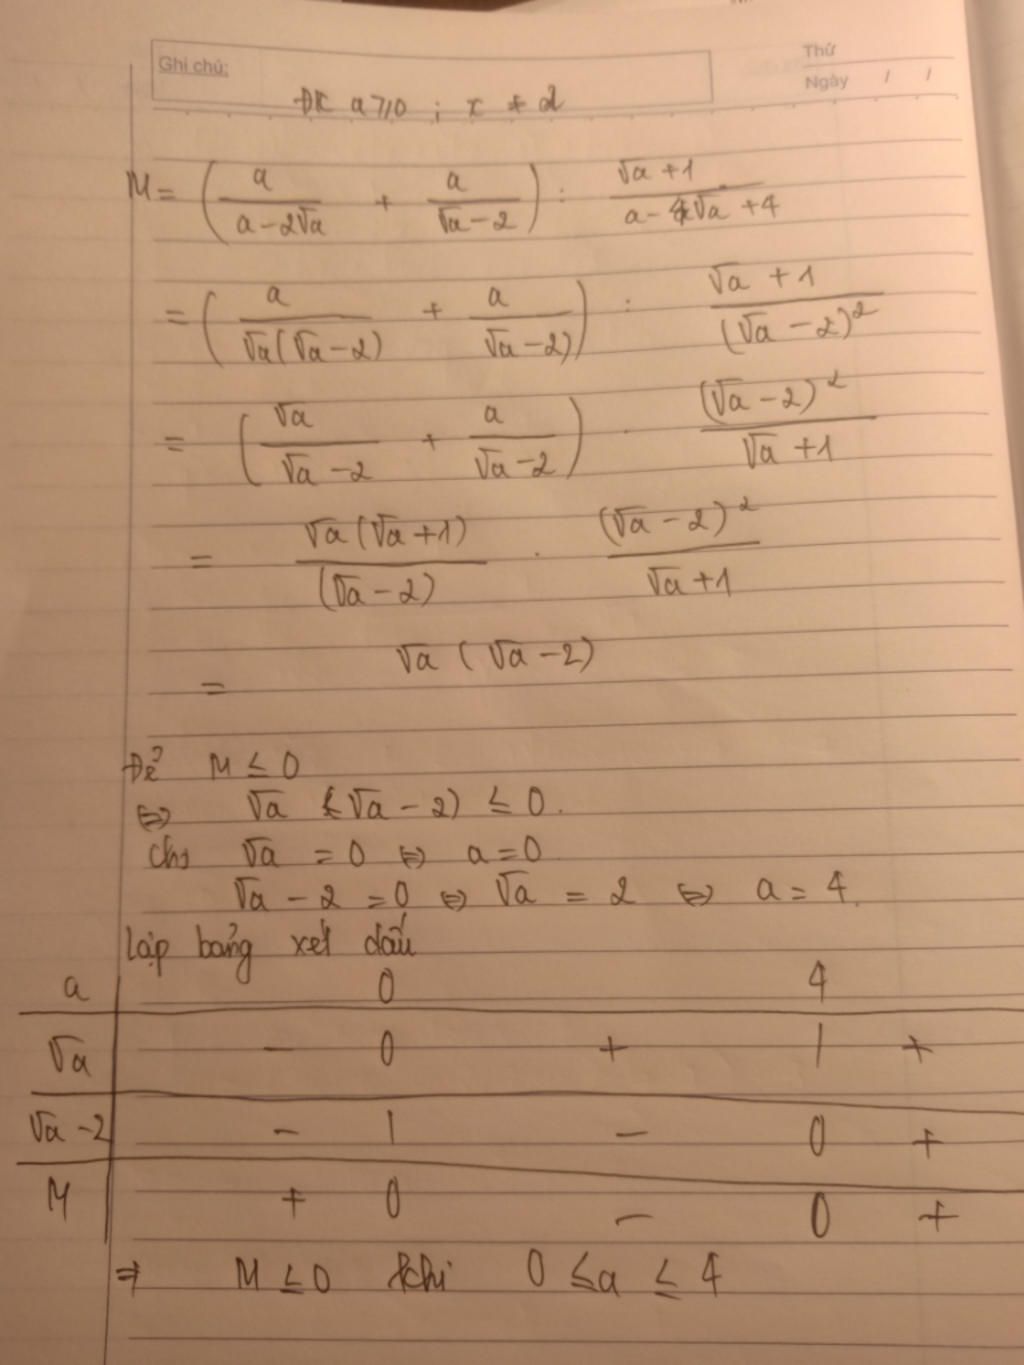 Ghi chú:
Thứ
Ngày / /
ĐK a ≥ 0 ; x ≠ 2
M = ( a/(a - 2√a) + a/(√a - 2) ) : (√a + 1)/(a - 4√a + 4)
= ( a/(√a(√a - 2)) + a/(√a - 2) ) : (√a + 1)/(√a - 2)²
= ( √a/(√a - 2) + a/(√a - 2) ) . (√a - 2)²/(√a + 1)
= √a(√a + 1)/(√a - 2) . (√a - 2)²/(√a + 1)
= √a (√a - 2)
Để M ≤ 0
⇔ √a (√a - 2) ≤ 0.
Cho √a = 0 ⇔ a = 0
√a - 2 = 0 ⇔ √a = 2 ⇔ a = 4.
Lập bảng xét dấu
a 0 4
√a - 0 + | +
√a - 2 - | - 0 +
M + 0 - 0 +
⇒ M ≤ 0 khi 0 ≤ a ≤ 4